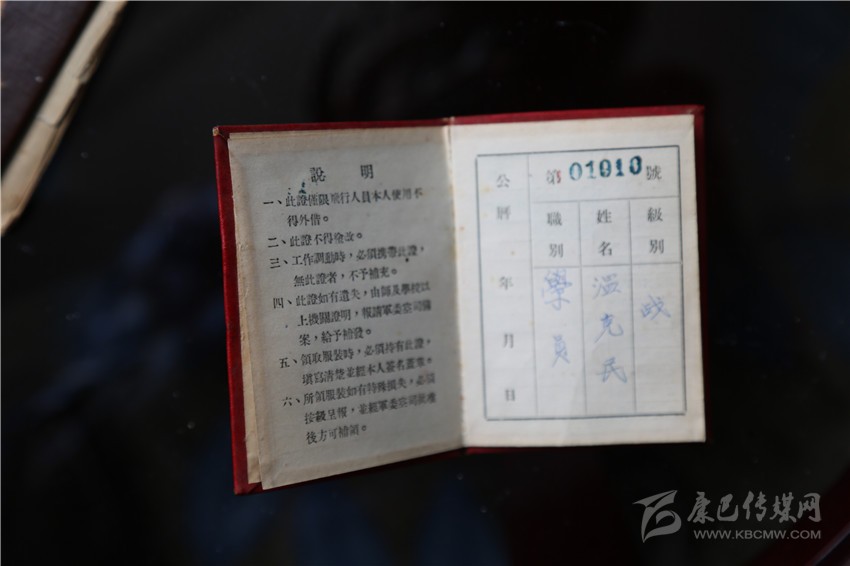 說 明
一、此證僅限飛行人員本人使用不
得外借。
二、此證不得塗改。
三、工作調動時，必須攜帶此證，
無此證者，不予補充。
四、此證如有遺失，由師及學校以
上機關證明，報請軍委空司備
案，給予補發。
五、領取服裝時，必須持有此證，
填寫清楚並經本人簽名蓋章。
六、所領服裝如有特殊損失，必須
按級呈報，並經軍委空司批准
後方可補領。
第 01910 號
級別
姓名 溫克民
職別 學員
公曆 年 月 日
康巴传媒网
WWW.KBCMW.COM